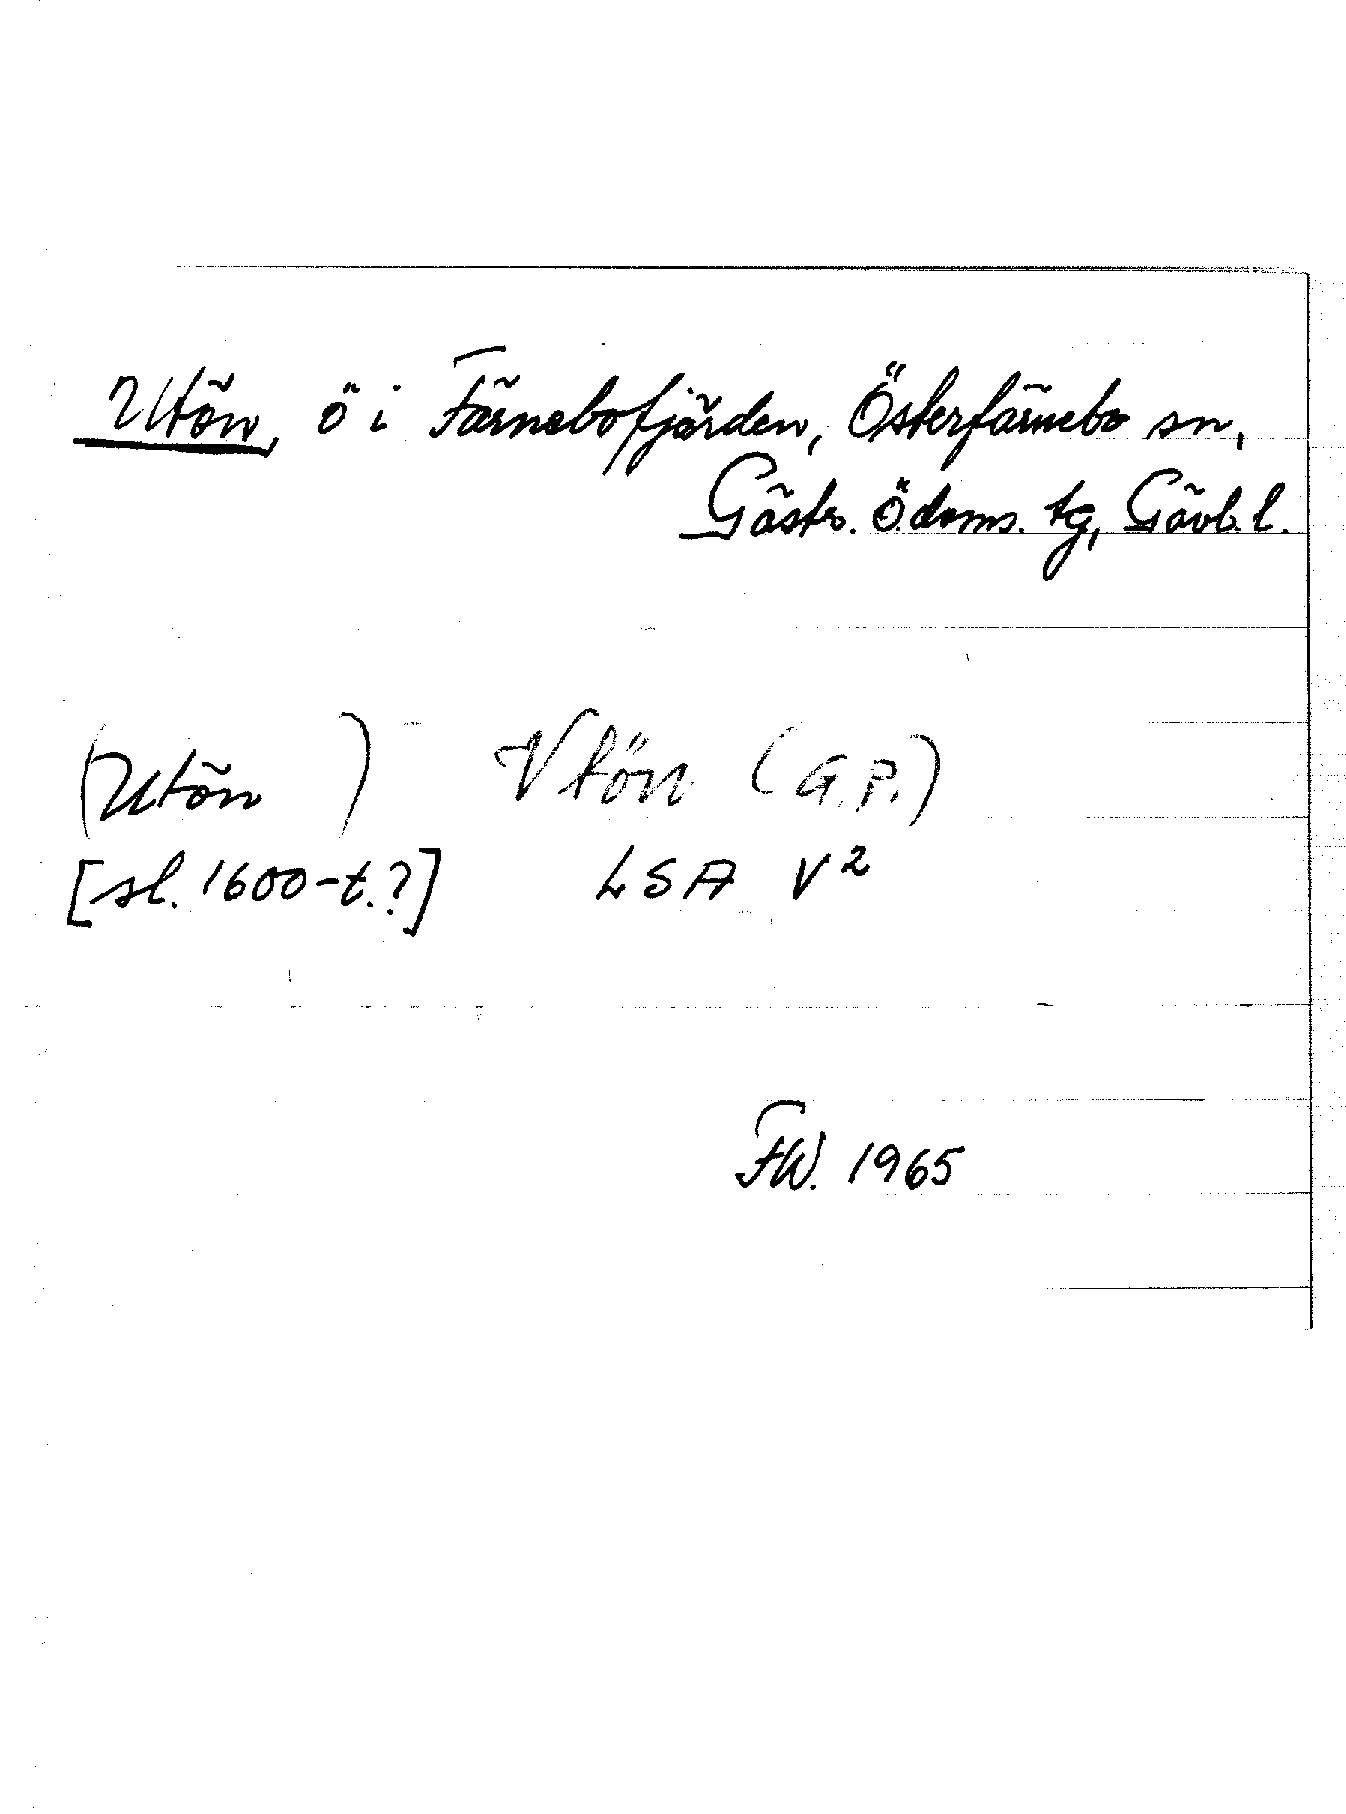 Utön, ö i Färnebofjärden, Österfärnebo sn,
Gästr. ö. doms. tg, Gävl. l.
(Utön) Vtön (G.P.)
[sl. 1600-t.?] LSA V²
FW. 1965